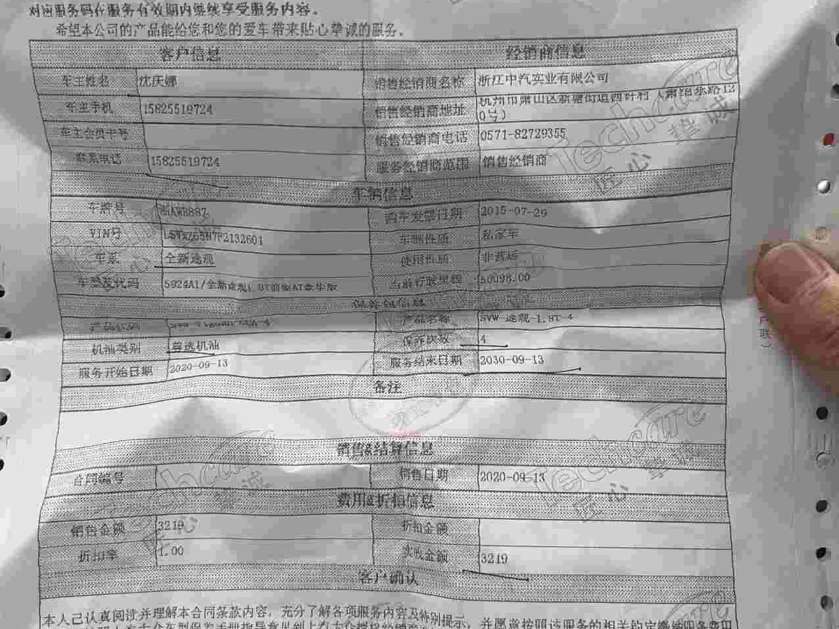 对应服务码在服务有效期内继续享受服务内容。
希望本公司的产品能给您和您的爱车带来贴心挚诚的服务。
客户信息 经销商信息
车主姓名 沈庆娜 销售经销商名称 浙江中汽实业有限公司
车主手机 15825519724 销售经销商地址 杭州市萧山区新塘街道西许村(萧绍东路120号)
车主会员卡号 销售经销商电话 0571-82729355
联系电话 15825519724 服务经销商范围 销售经销商
车辆信息
车牌号 购车发票日期 2015-07-29
VIN号 车辆性质 私家车
车系 全新途观 使用性质 非营运
车型及代码 当前行驶里程 50098.00
保养包信息
产品名称 SVW-途观-1.8T-4
机油类别 尊选机油 保养次数 4
服务开始日期 2020-09-13 服务结束日期 2030-09-13
备注
销售&结算信息
合同编号 销售日期 2020-09-13
费用&折扣信息
销售金额 3219 折扣金额
折扣率 1.00 实收金额 3219
客户确认
本人已认真阅读并理解本合同条款内容，充分了解各项服务内容及特别提示，并愿意按照该服务的相关约定缴纳服务费用
Techcare
匠心 挚诚